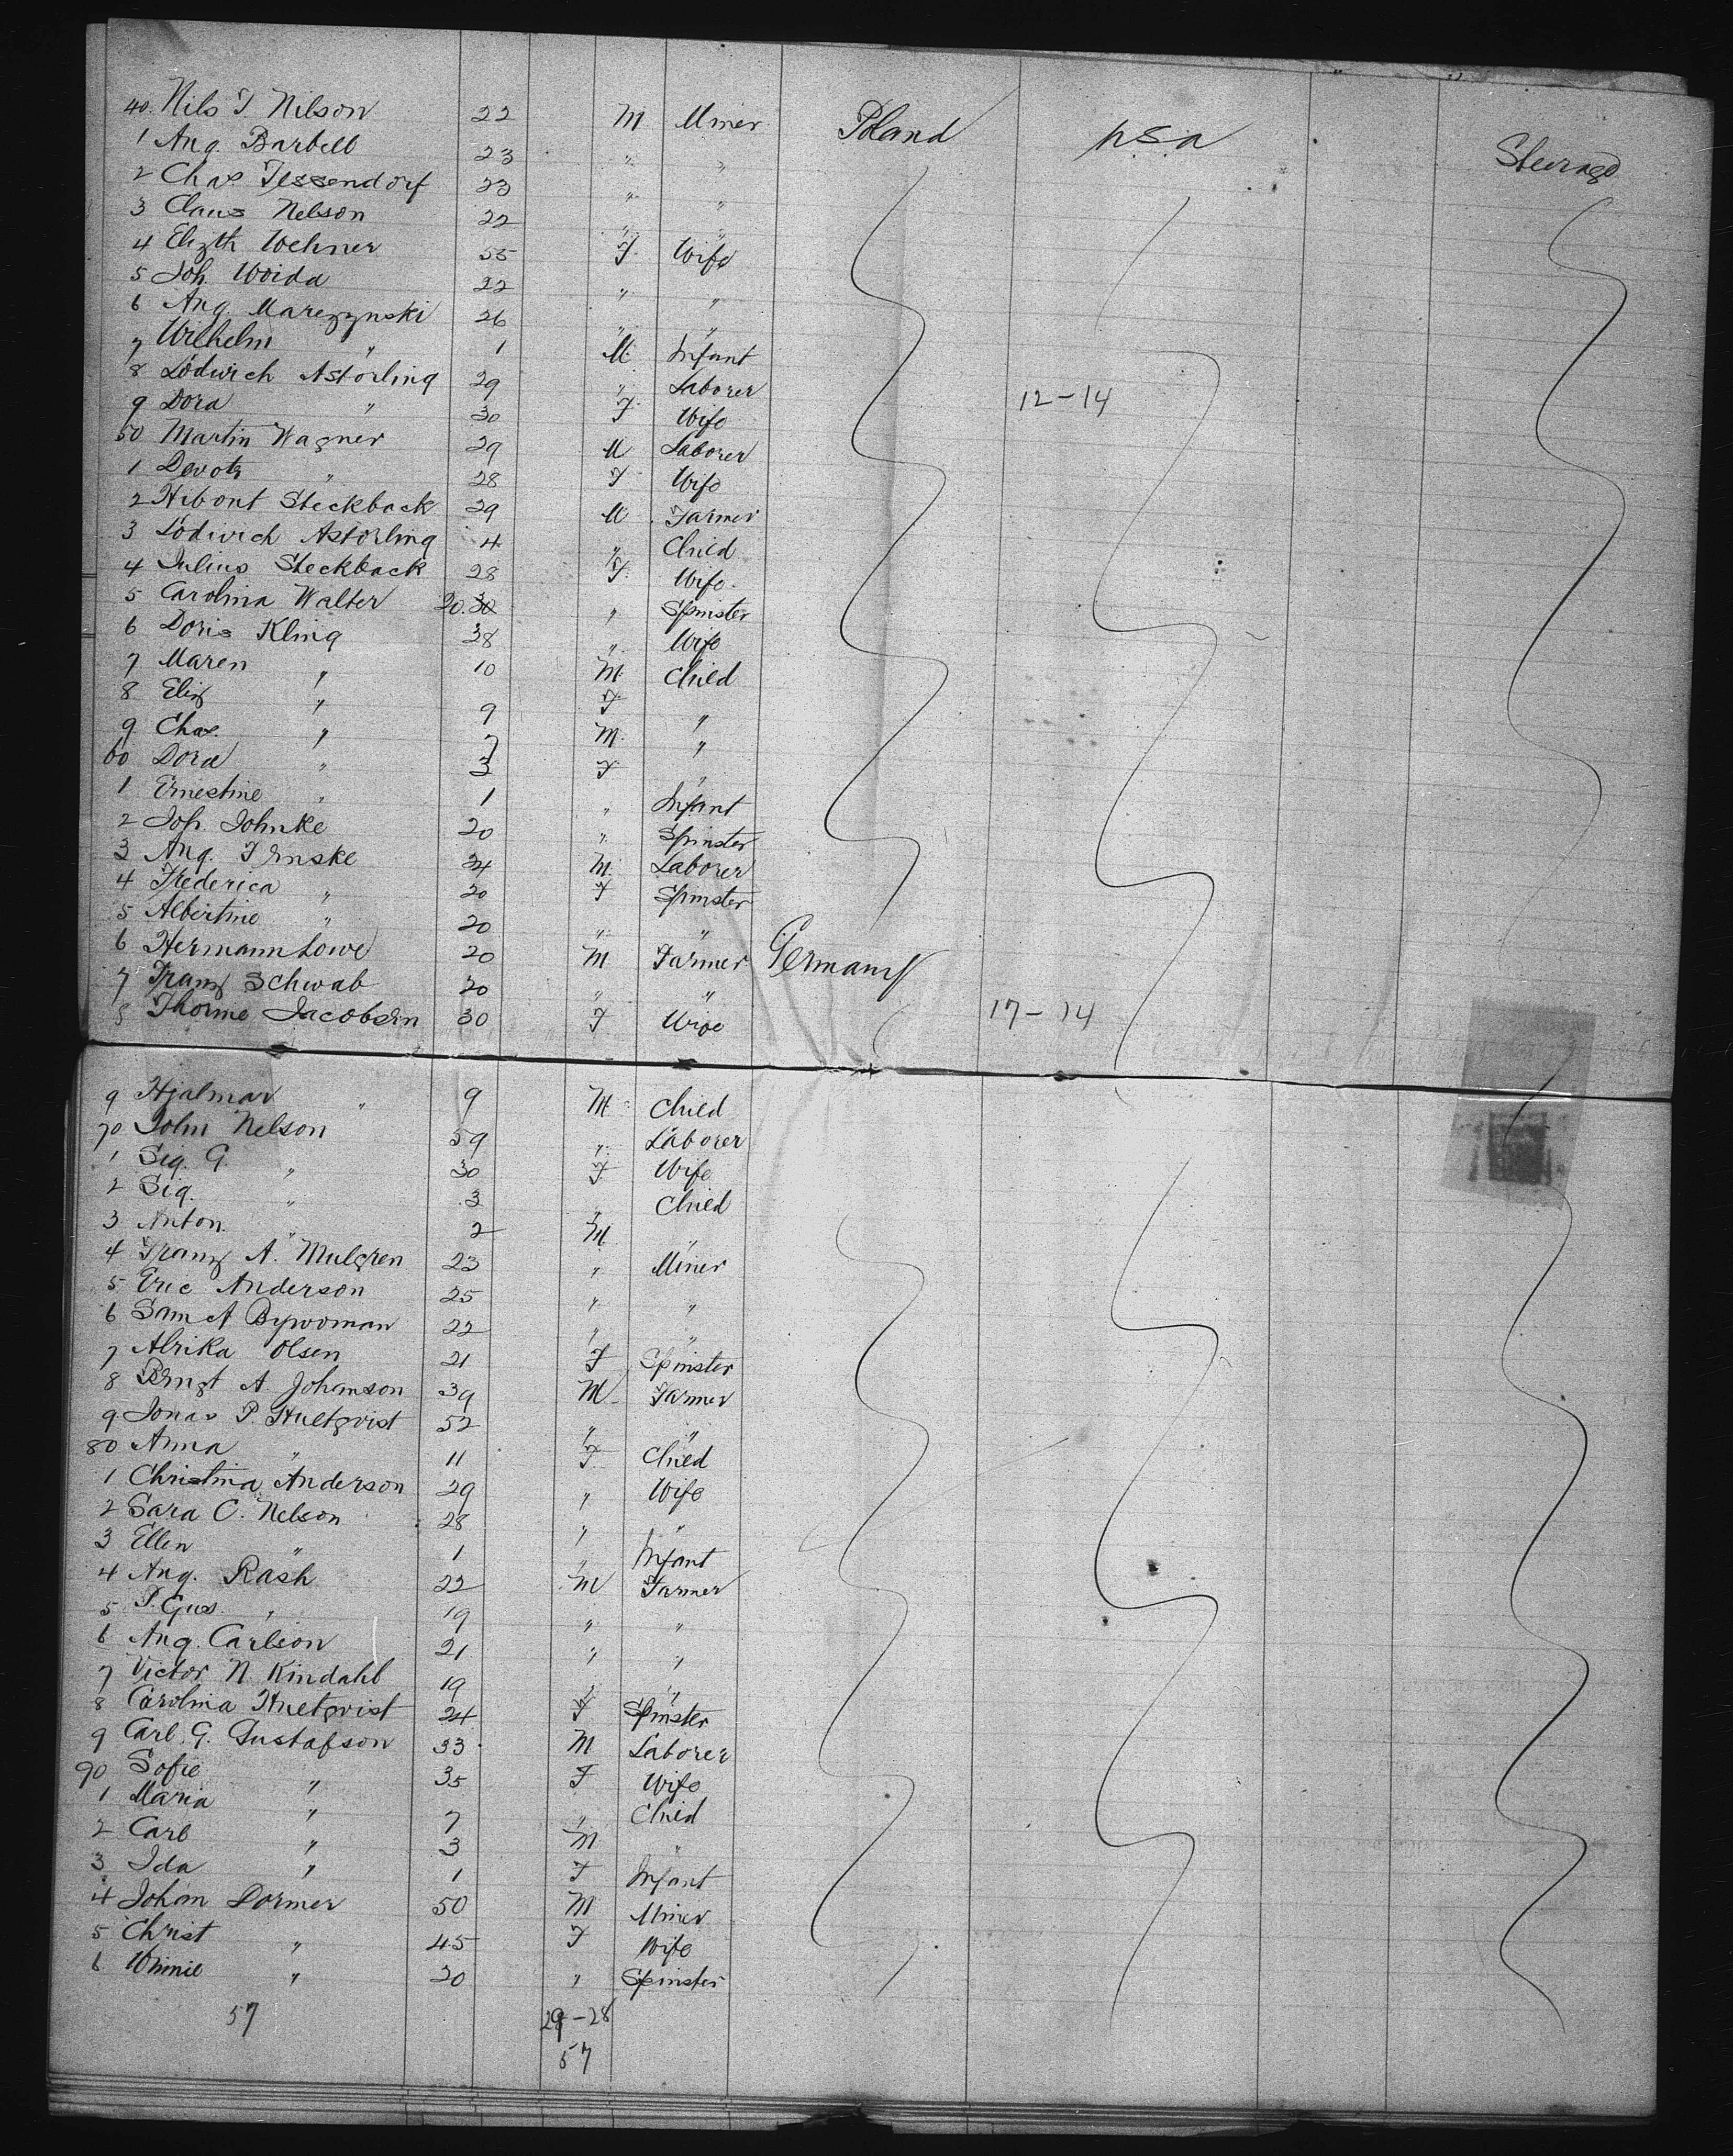 40. Nils T Nilson 22 M Miner Poland USA Steerage
1 Aug. Barbell 23 " "
2 Chas Tessendorf 23 " "
3 Claus Nelson 22 " "
4 Elizth Wehner 55 F. Wife
5 Joh. Woida 22 " "
6 Aug. Marezynski 26 " "
7 Wilhelm " 1 M. Infant
8 Lodwich Astorling 29 " Laborer
9 Dora " 30 F. Wife 12-14
50 Martin Wagner 29 M Laborer
1 Devotz " 28 F Wife
2 Hibont Steckback 29 M Farmer
3 Lodwich Astorling 4 " Child
4 Julius Steckback 28 F. Wife
5 Carolina Walter 20. 30 " Spinster
6 Doris Kling 38 " Wife
7 Maren " 10 M. Child
8 Eliz " 9 F "
9 Chas. " 7 M. "
60 Dora " 3 F "
1 Ernestine " 1 " Infant
2 Joh. Johnke 20 " Spinster
3 Aug. Tenske 34 M. Laborer
4 Frederica " 20 F Spinster
5 Albertine " 20 " "
6 Hermann Lowe 20 M Farmer Germany
7 Franz Schwab 20 " "
8 Thorine Jacobsen 30 F Wife 17-14
9 Hjalmar " 9 M Child
70 John Nelson 59 " Laborer
1 Sig. G. " 30 F Wife
2 Sig. " 3 " Child
3 Anton. " 2 M "
4 Franz A. Mulgren 23 " Miner
5 Eric Anderson 25 " "
6 Sam A Bywoman 22 " "
7 Alrika Olsen 21 F Spinster
8 Berngt A. Johanson 39 M Farmer
9 Jonas P. Hultqvist 52 " "
80 Anna " 11 F Child
1 Christina Anderson 29 " Wife
2 Sara C. Nelson 28 " "
3 Ellen " 1 " Infant
4 Aug. Rash 22 M Farmer
5 P. Gus. " 19 " "
6 Aug. Carlson 21 " "
7 Victor N. Kindahl 19 " "
8 Carolina Hultqvist 24 F Spinster
9 Carl. G. Gustafson 33 M Laborer
90 Sofie " 35 F Wife
1 Maria " 7 " Child
2 Carl " 3 M "
3 Ida " 1 F Infant
4 Johan Dormer 50 M Miner
5 Christ " 45 F Wife
6 Winnie " 20 " Spinster
57 29-28
57